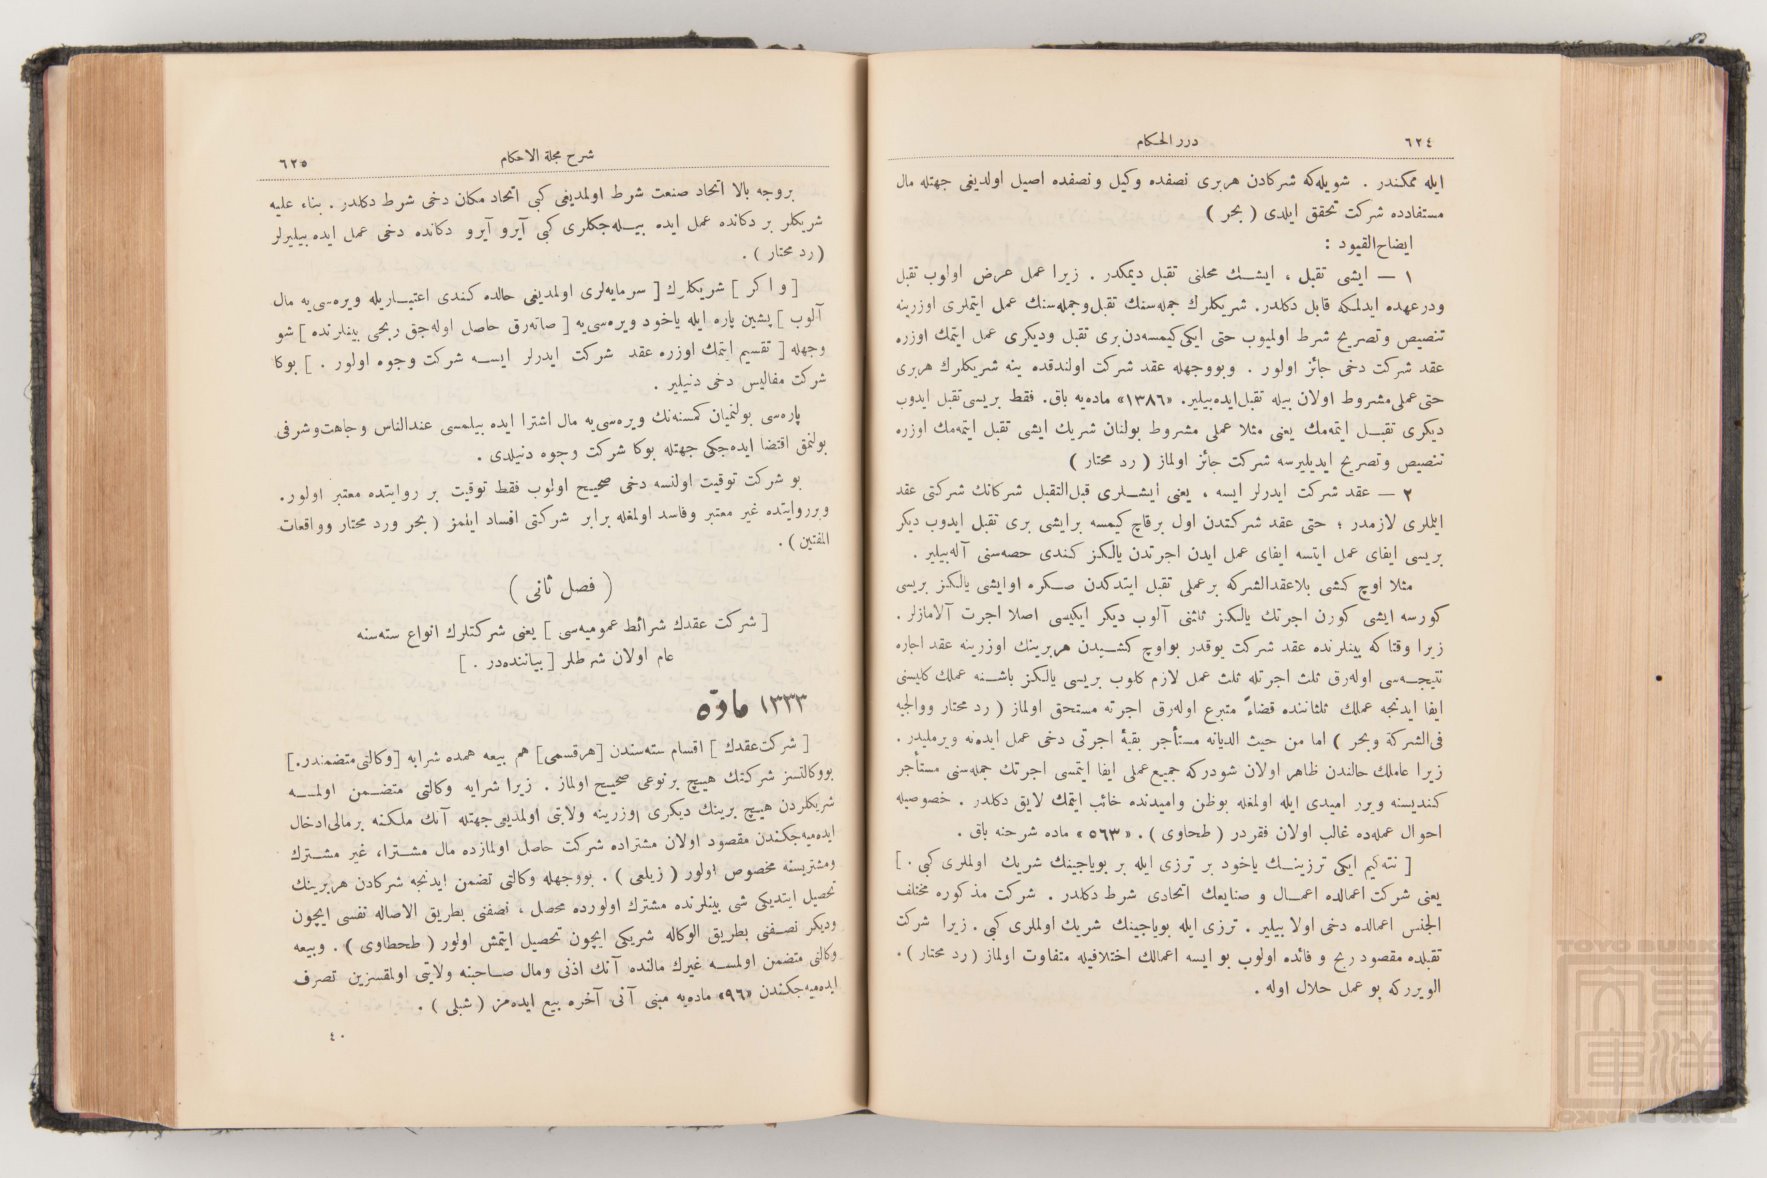 ٦٢٤
درر الحكام
ايله ممكندر . شويله‌كه شركادن هربرى نصفده وكيل ونصفده اصيل اولديغى جهتله مال
مستفادده شركت تحقق ايلدى ( بحر )
ايضاح‌القيود :
١ — ايشى تقبل ، ايشـك محلنى تقبل ديمكدر . زيرا عمل عرض اولوب تقبل
ودرعهده ايدلمكه قابل دكلدر. شريكلرك جمله‌سنك تقبل‌وجمله‌سنك عمل ايتملرى اوزرينه
تنصيص وتصريح شرط اولميوب حتى ايكى‌كيمسه‌دن‌برى تقبل وديكرى عمل ايتمك اوزره
عقد شركت دخى جائز اولور . وبووجهله عقد شركت اولندقده ينه شريكلرك هربرى
حتى‌عملى‌مشروط اولان بيله تقبل‌ايده‌بيلير. «١٣٨٦» ماده‌يه باق. فقط بريسى‌تقبل ايدوب
ديكرى تقبـل ايتمه‌مك يعنى مثلا عملى مشروط بولنان شريك ايشى تقبل ايتمه‌مك اوزره
تنصيص وتصريح ايديليرسه شركت جائز اولماز ( رد محتار )
٢ — عقد شركت ايدرلر ايسه ، يعنى ايشـلرى قبل‌التقبل شركانك شركتى عقد
ايتملرى لازمدر ؛ حتى عقد شركتدن اول برقاچ كيمسه برايشى برى تقبل ايدوب ديكر
بريسى ايفاى عمل ايتسه ايفاى عمل ايدن اجرتدن يالكز كندى حصه‌سنى آله‌بيلير .
مثلا اوچ كشى بلاعقدالشركه برعملى تقبل ايتدكدن صـكره اوايشى يالكز بريسى
كورسه ايشى كورن اجرتك يالكز ثلثنى آلوب ديكر ايكيسى اصلا اجرت آلامازلر .
زيرا وقتاكه بينلرنده عقد شركت يوقدر بواوچ كشـيدن هربرينك اوزرينه عقد اجاره
نتيجـه‌سى اوله‌رق ثلث اجرتله ثلث عمل لازم كلوب بريسى يالكز باشـنه عملك كليسنى
ايفا ايدنجه عملك ثلثاننده قضاءً متبرع اوله‌رق اجرته مستحق اولماز ( رد محتار ووالجيه
فى‌الشركة وبحر ) اما من حيث الديانه مستأجر بقيۀ اجرتى دخى عمل ايده‌نه ويرمليدر .
زيرا عاملك حالندن ظاهر اولان شودركه جميع‌عملى ايفا ايتمسى اجرتك جمله‌سنى مستأجر
كنديسنه ويرر اميدى ايله اولمغله بوظن واميدنده خائب ايتمك لايق دكلدر . خصوصيله
احوال عمله‌ده غالب اولان فقردر ( طحاوى ) . «٥٦٣» ماده شرحنه باق .
[ نته‌كيم ايكى ترزينـك ياخود بر ترزى ايله بر بوياجينك شريك اولملرى كبى . ]
يعنى شركت اعمالده اعمـال و صنايعك اتحادى شرط دكلدر . شركت مذكوره مختلف
الجنس اعمالده دخى اولا بيلير . ترزى ايله بوياجينك شريك اولملرى كبى . زيرا شركت
تقبلده مقصود ربح و فائده اولوب بو ايسه اعمالك اختلافيله متفاوت اولماز ( رد محتار ) .
الويرركه بو عمل حلال اوله .
شرح مجلة الاحكام
٦٢٥
بروجه بالا اتحاد صنعت شرط اولمديغى كبى اتحاد مكان دخى شرط دكلدر . بناء عليه
شريكلر بر دكانده عمل ايده بيـله‌جكلرى كبى آيرو آيرو دكانده دخى عمل ايده بيليرلر
( رد محتار ) .
[ و اكر ] شريكلرك [ سرمايه‌لرى اولمديغى حالده كندى اعتبـاريله ويره‌سى‌يه مال
آلوب ] پشين پاره ايله ياخود ويره‌سى‌يه [ صاته‌رق حاصل اوله‌جق ربحى بينلرنده ] شو
وجهله [ تقسيم ايتمك اوزره عقد شركت ايدرلر ايسـه شركت وجوه اولور . ] بوكا
شركت مفاليس دخى دنيلير .
پاره‌سى بولنميان كمسنه‌نك ويره‌سى‌يه مال اشترا ايده بيلمسى عندالناس وجاهت‌وشرفى
بولنمق اقتضا ايده‌جكى جهتله بوكا شركت وجوه دنيلدى .
بو شركت توقيت اولنسه دخى صحيح اولوب فقط توقيت بر روايتده معتبر اولور.
وبرروايتده غير معتبر وفاسد اولمغله برابر شركتى افساد ايتمز ( بحر ورد محتار وواقعات
المفتين ) .
( فصل ثانى )
[ شركت عقدك شرائط عموميه‌سى ] يعنى شركتلرك انواع سته‌سنه
عام اولان شرطلر [ بياننده‌در . ]
١٣٣٣ مادّه
[ شركت‌عقدك ] اقسام سته‌سندن [هرقسمى] هم بيعه همده شرايه [وكالتى‌متضمندر.]
بووكالتسز شركتك هيچ برنوعى صحيح اولماز . زيرا شرايه وكالتى متضـمن اولمسـه
شريكلردن هيچ برينك ديكرى اوزرينه ولايتى اولمديغى‌جهتله آنك ملكنه برمالى‌ادخال
ايده‌ميه‌جكندن مقصود اولان مشتراده شركت حاصل اولمازده مال مشـترا، غير مشـترك
ومشتريسنه مخصوص اولور ( زيلعى ) . بووجهله وكالتى تضمن ايدنجه شركادن هربرينك
تحصيل ايتديكى شى بينلرنده مشترك اولورده محصل ، نصفنى بطريق الاصاله نفسى ايچون
وديكر نصـفنى بطريق الوكاله شريكى ايچون تحصيل ايتمش اولور ( طحطاوى ) . وبيعه
وكالتى متضمن اولمسـه غيرك مالنده آنك اذنى ومال صـاحبنه ولايتى اولمقسزين تصرف
ايده‌ميه‌جكندن «٩٦» ماده‌يه مبنى آنى آخره بيع ايده‌مز ( شبلى ) .
٤٠
TOYO BUNKO
東洋文庫
TOYO BUNKO